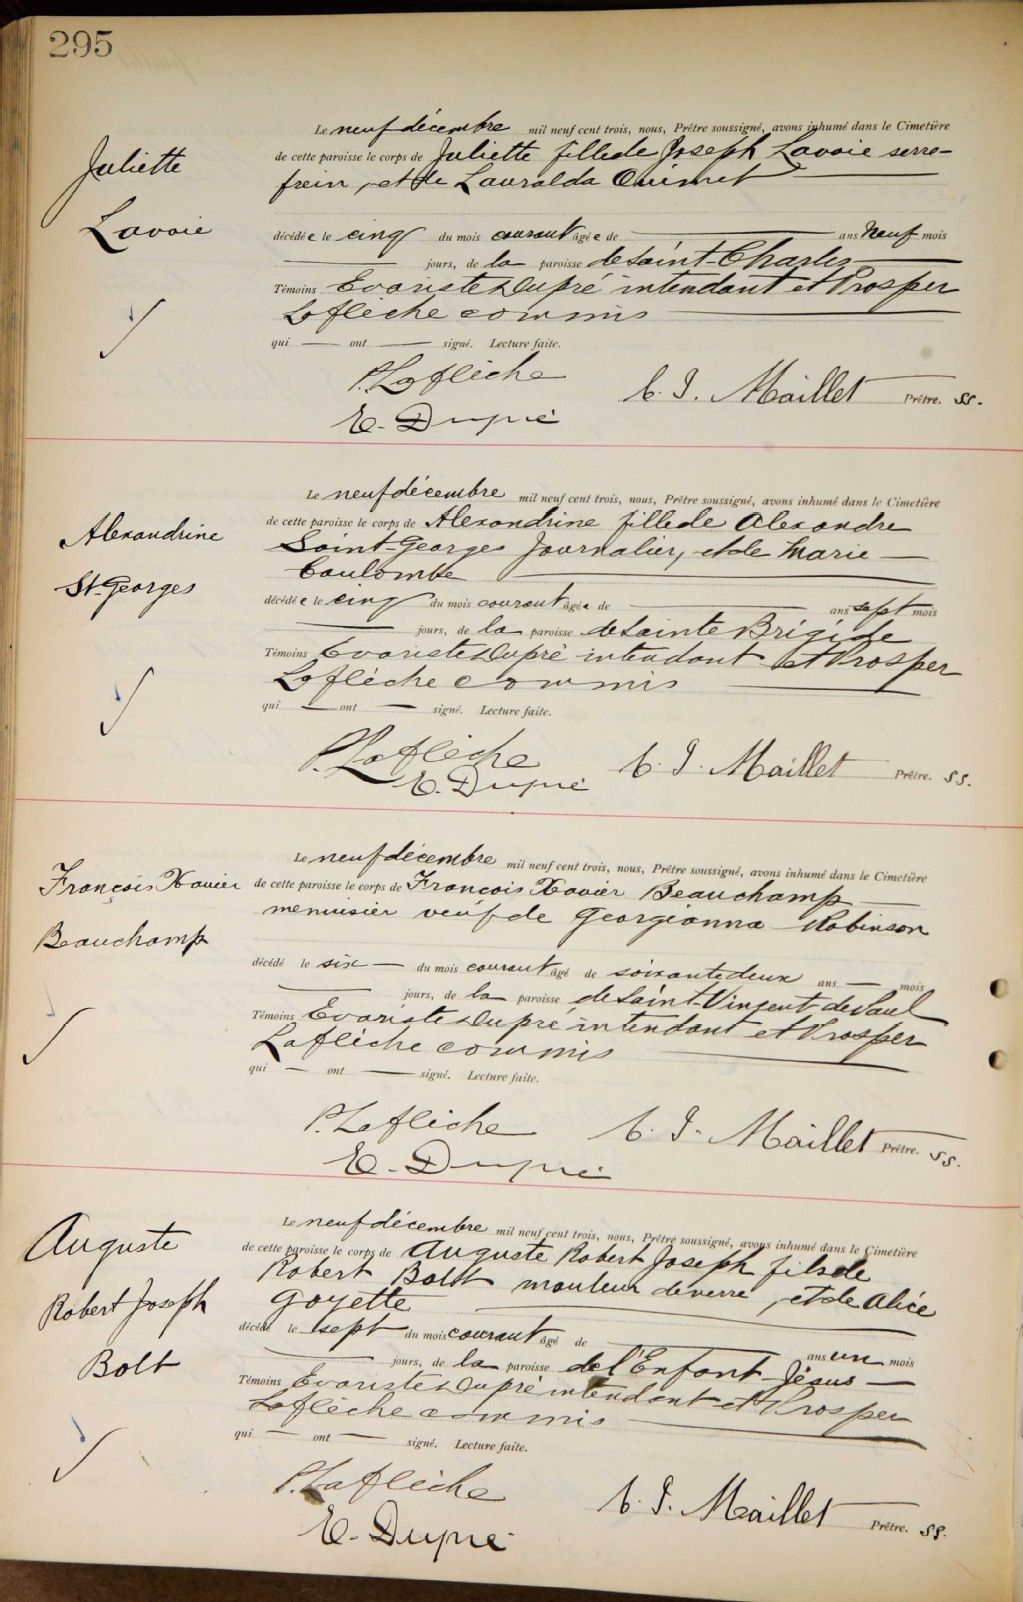 295
Juliette
Lavoie
Le neuf décembre mil neuf cent trois, nous, Prêtre soussigné, avons inhumé dans le Cimetière
de cette paroisse le corps de Juliette fille de Joseph Lavoie serre-
frein, et de Lauralda Ouimet
décédée le cinq du mois courant âgée de ans neuf mois
jours, de la paroisse de Saint Charles
Témoins Evariste Dupré intendant et Prosper
Laflèche commis
qui ont signé. Lecture faite.
P. Laflèche
E. Dupré
C. J. Maillet Prêtre. SS.
Alexandrine
St-Georges
Le neuf décembre mil neuf cent trois, nous, Prêtre soussigné, avons inhumé dans le Cimetière
de cette paroisse le corps de Alexandrine fille de Alexandre
Saint-Georges Journalier, et de Marie
Coulombe
décédée le cinq du mois courant âgée de ans sept mois
jours, de la paroisse de Sainte Brigide
Témoins Evariste Dupré intendant et Prosper
Laflèche commis
qui ont signé. Lecture faite.
P. Laflèche
E. Dupré
C. J. Maillet Prêtre. SS.
François Xavier
Beauchamp
Le neuf décembre mil neuf cent trois, nous, Prêtre soussigné, avons inhumé dans le Cimetière
de cette paroisse le corps de François Xavier Beauchamp
menuisier veuf de Georgianna Robinson
décédé le six du mois courant âgé de soixante deux ans mois
jours, de la paroisse de Saint-Vincent de Paul
Témoins Evariste Dupré intendant et Prosper
Laflèche commis
qui ont signé. Lecture faite.
P. Laflèche
E. Dupré
C. J. Maillet Prêtre. SS.
Auguste
Robert Joseph
Bolt
Le neuf décembre mil neuf cent trois, nous, Prêtre soussigné, avons inhumé dans le Cimetière
de cette paroisse le corps de Auguste Robert Joseph fils de
Robert Bolt mouleur de verre, et de Alice
Goyette
décédé le sept du mois courant âgé de ans un mois
jours, de la paroisse de l'Enfant-Jésus
Témoins Evariste Dupré intendant et Prosper
Laflèche commis
qui ont signé. Lecture faite.
P. Laflèche
E. Dupré
C. J. Maillet Prêtre. SS.